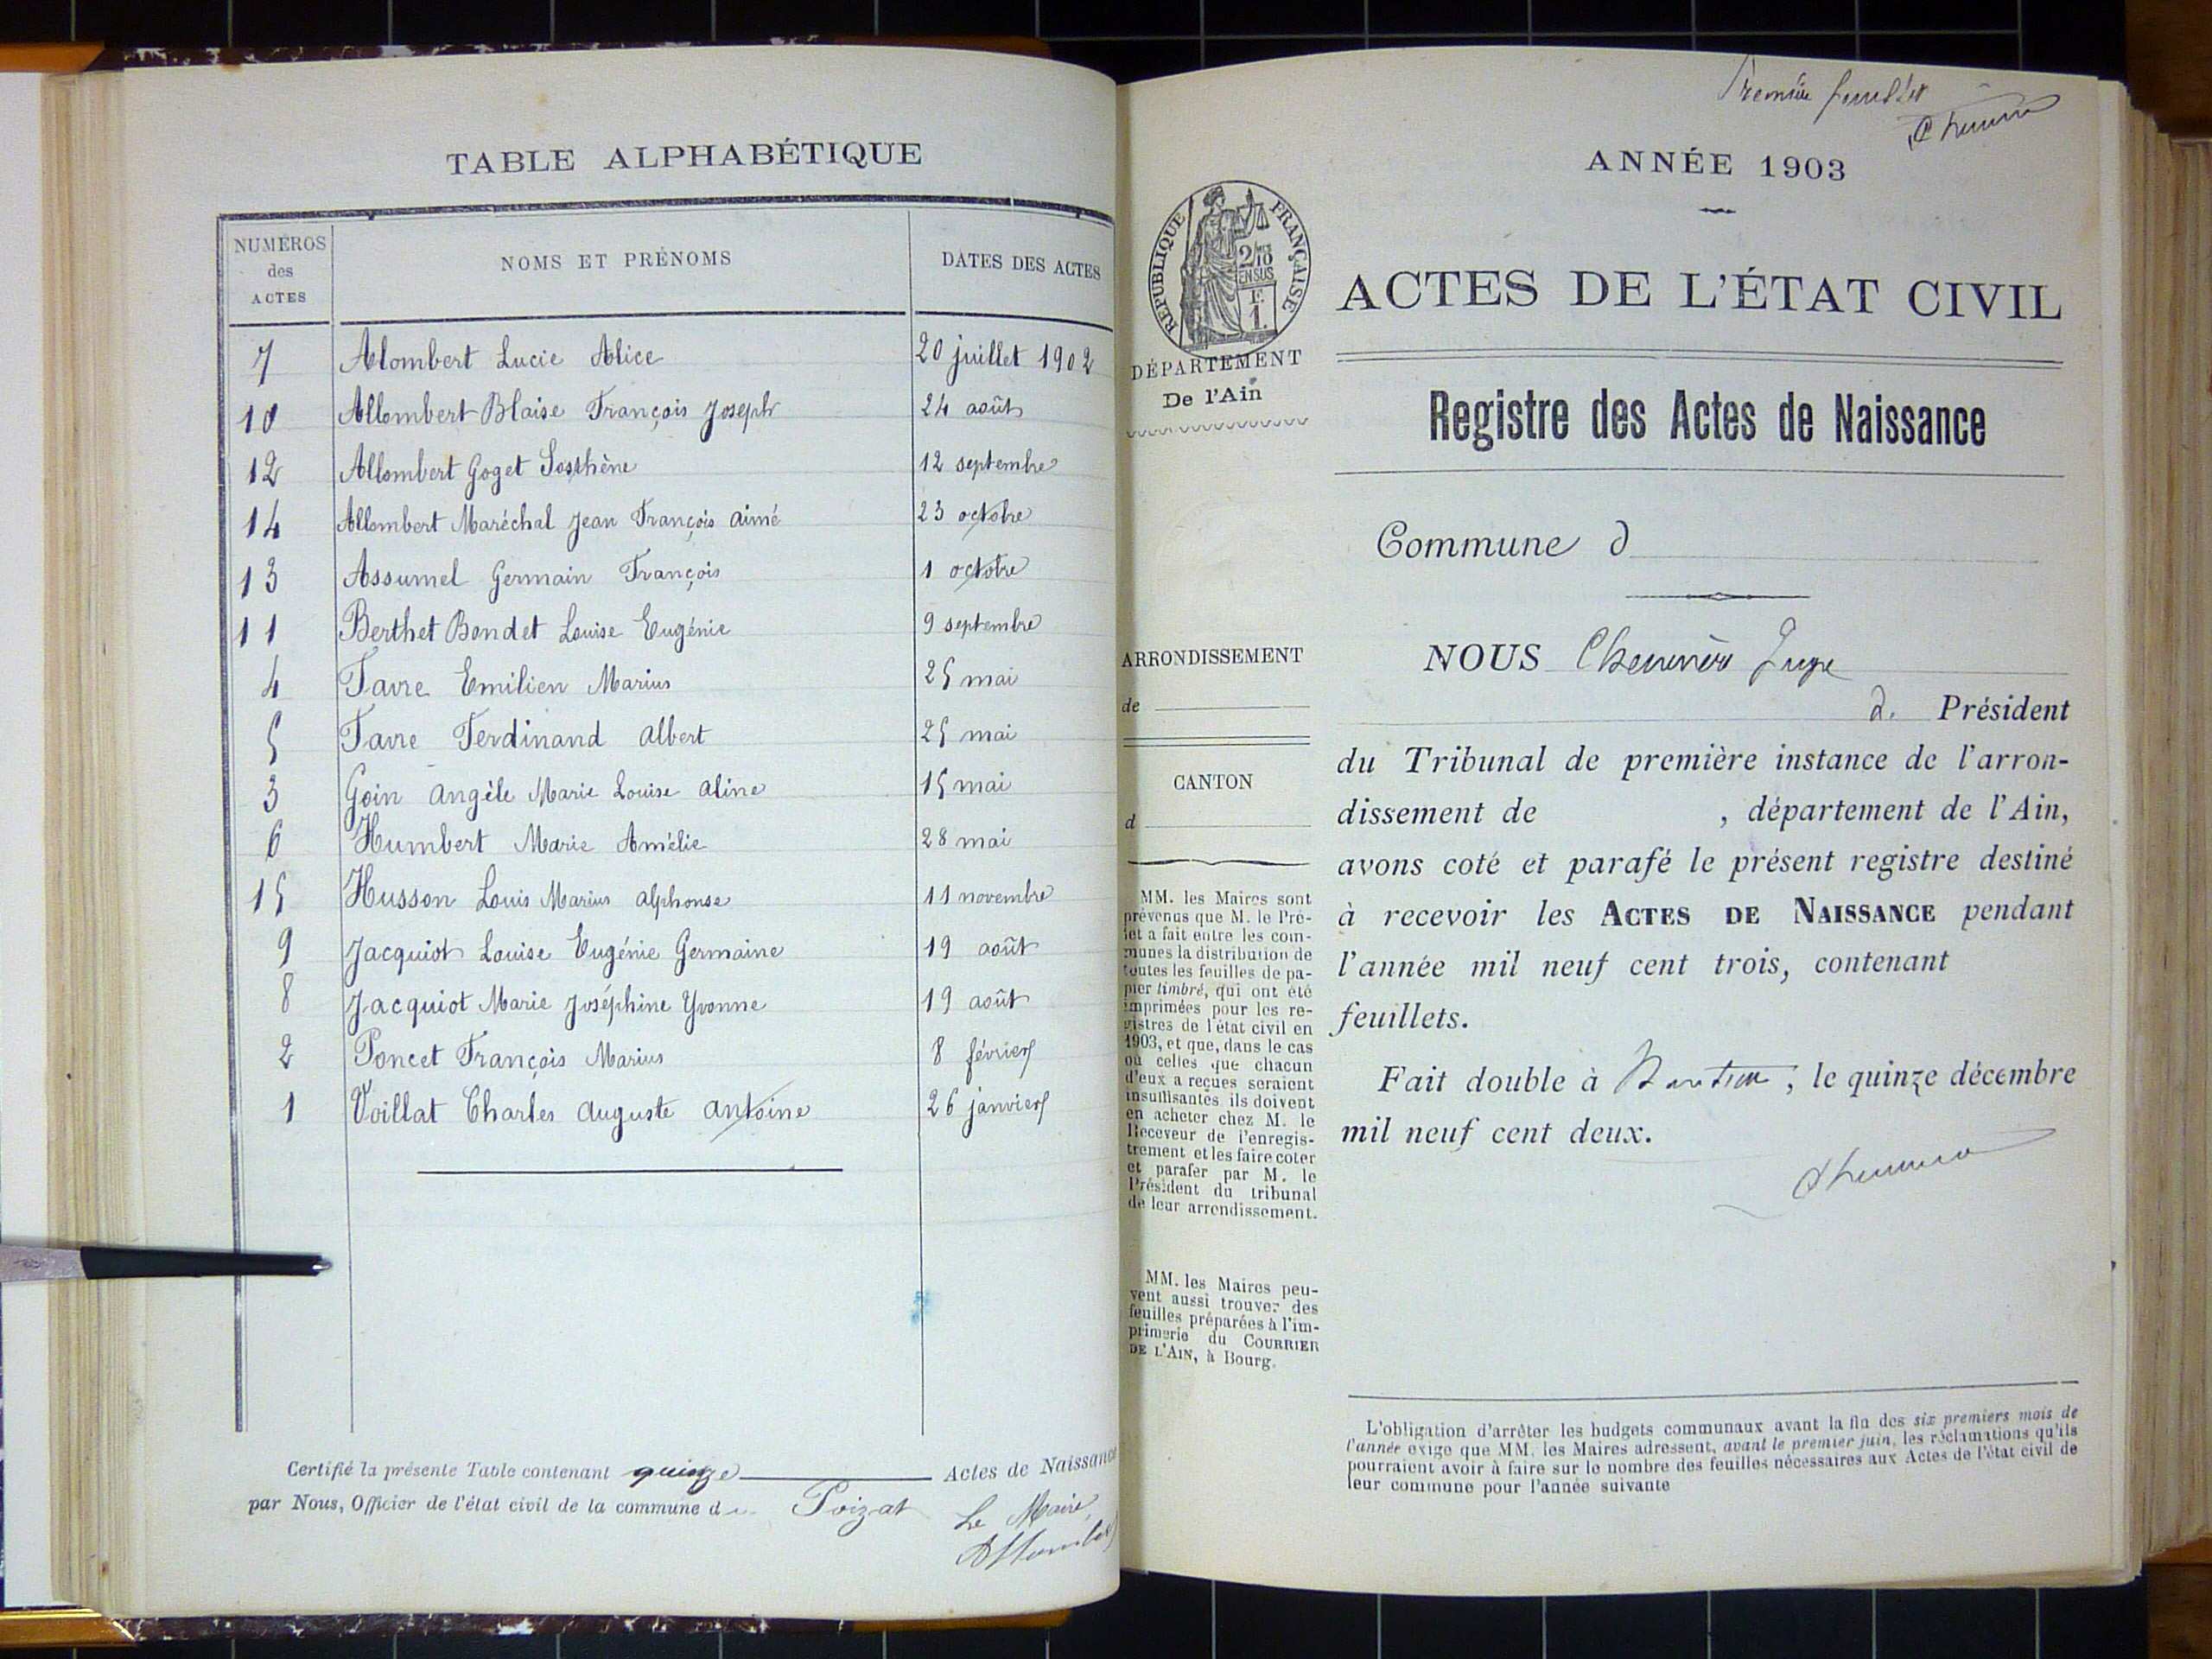 TABLE ALPHABÉTIQUE
NUMÉROS des ACTES
NOMS ET PRÉNOMS
DATES DES ACTES
7 Alombert Lucie Alice 20 juillet 1902
10 Allombert Blaise François Joseph 24 août
12 Allombert Goget Sosthène 12 septembre
14 Allombert Maréchal Jean François Aimé 23 octobre
13 Assumel Germain François 1 octobre
11 Berthet Bondet Louise Eugénie 9 septembre
4 Favre Emilien Marius 25 mai
5 Favre Ferdinand Albert 25 mai
3 Goin Angèle Marie Louise Aline 15 mai
6 Humbert Marie Amélie 28 mai
15 Husson Louis Marius Alphonse 11 novembre
9 Jacquiot Louise Eugénie Germaine 19 août
8 Jacquiot Marie Joséphine Yvonne 19 août
2 Poncet François Marius 8 février
1 Voillat Charles Auguste Antoine 26 janvier
Certifié la présente Table contenant quinze Actes de Naissance
par Nous, Officier de l'état civil de la commune du Poizat
Le Maire,
Premier feuillet
ANNÉE 1903
RÉPUBLIQUE FRANÇAISE
2/10
EN SUS
F.
1.
DÉPARTEMENT
De l'Ain
ACTES DE L'ÉTAT CIVIL
Registre des Actes de Naissance
Commune d
ARRONDISSEMENT
de
CANTON
d
MM. les Maires sont
prévenus que M. le Pré-
fet a fait entre les com-
munes la distribution de
toutes les feuilles de pa-
pier timbré, qui ont été
imprimées pour les re-
gistres de l'état civil en
1903, et que, dans le cas
où celles que chacun
d'eux a reçues seraient
insuffisantes ils doivent
en acheter chez M. le
Receveur de l'enregis-
trement et les faire coter
et parafer par M. le
Président du tribunal
de leur arrondissement.
MM. les Maires peu-
vent aussi trouver des
feuilles préparées à l'im-
primerie du COURRIER
DE L'AIN, à Bourg.
NOUS Juge
d. Président
du Tribunal de première instance de l'arron-
dissement de , département de l'Ain,
avons coté et parafé le présent registre destiné
à recevoir les ACTES DE NAISSANCE pendant
l'année mil neuf cent trois, contenant
feuillets.
Fait double à Nantua, le quinze décembre
mil neuf cent deux.
L'obligation d'arrêter les budgets communaux avant la fin des six premiers mois de
l'année exige que MM. les Maires adressent, avant le premier juin, les réclamations qu'ils
pourraient avoir à faire sur le nombre des feuilles nécessaires aux Actes de l'état civil de
leur commune pour l'année suivante